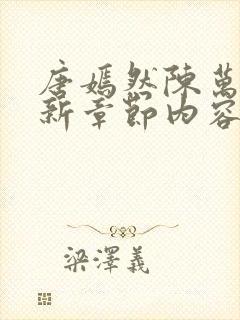 唐嫣然陳萬
新章節內容
梁澤義